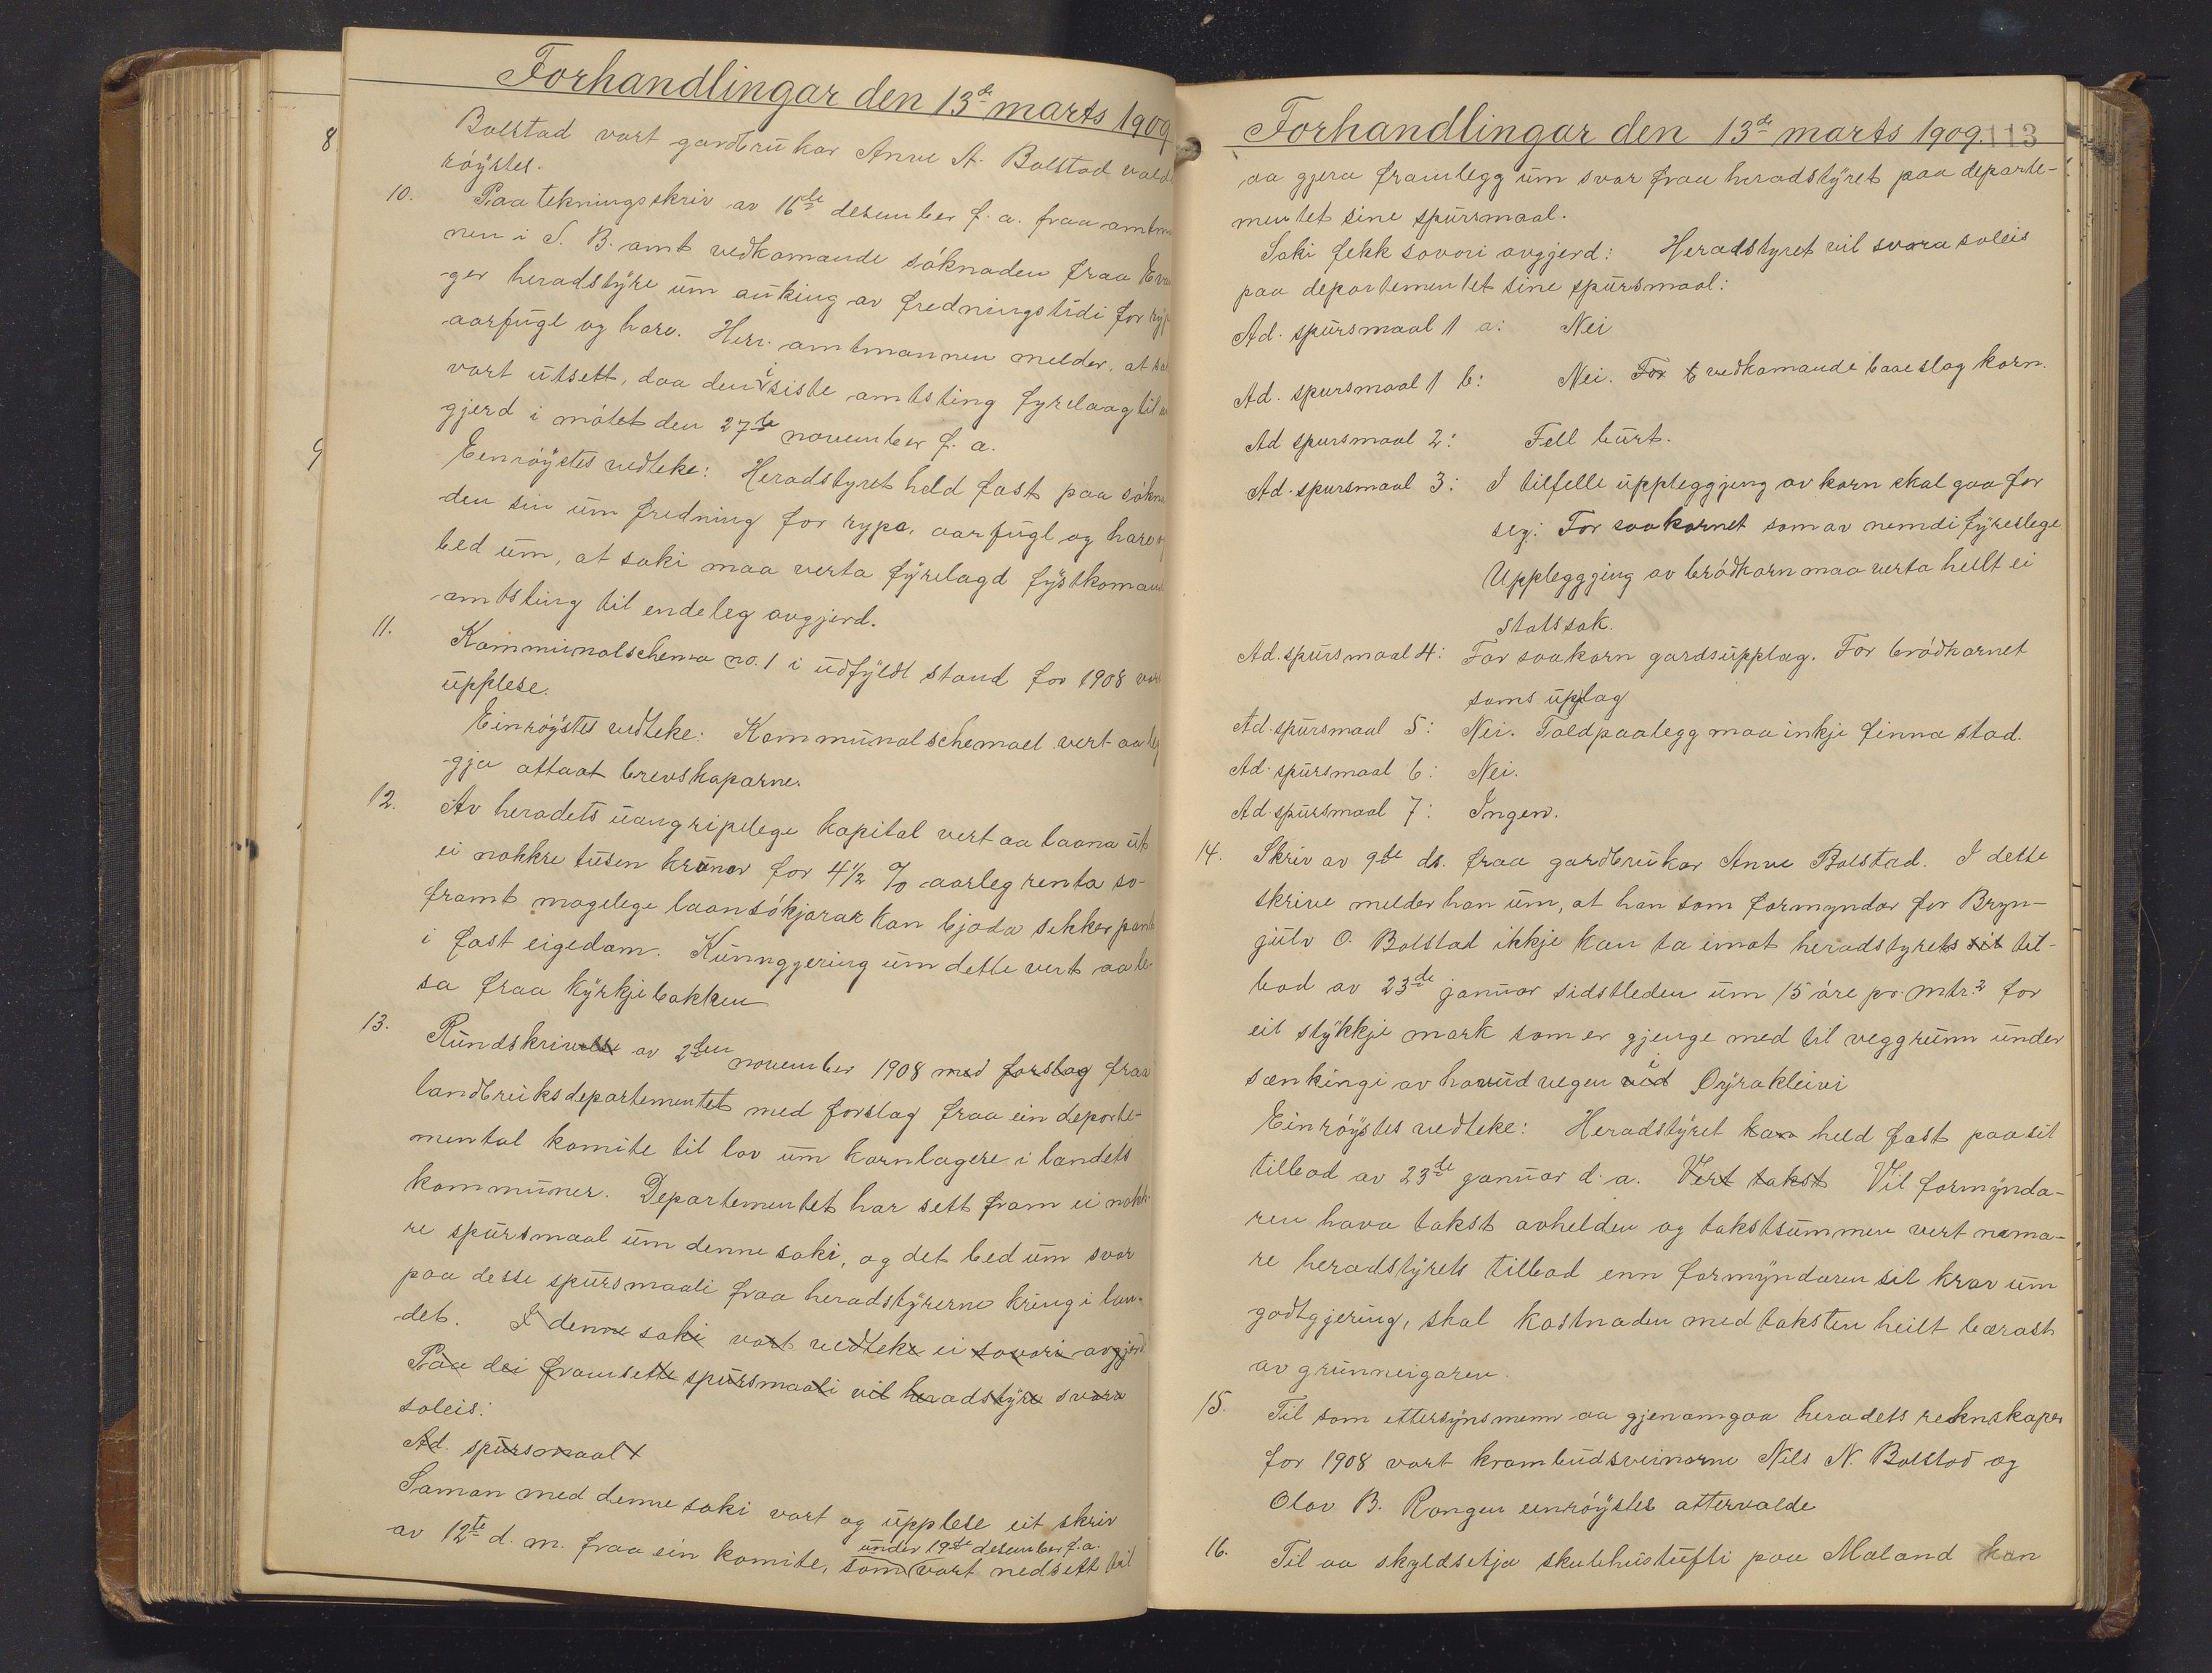 Forhandlingar den 13de marts 1909
Bolstad vart gardbrukar Anve A. Bolstad vald
røystes.
10. Paa tekningsskriv av 16de desember f. a. fraa amtm
nen i S. B. amt vedkomande søknaden fraa Evan
ger heradstyre um auking av fredningstidi for ryp
aarfugl og hare. Herr amtmannen melder, at sa
vart utsett, daa den i siste amtsting fyrelaag til
gjerd i møtet den 27de november f. a.
Eenrøystes vedteke: Heradstyret held fast paa søkna
den sin um fredning for rypa, aarfugl og hare og
bed um, at saki maa verta fyrelagd fystkomand
amtsting til endeleg avgjerd.
11. Kommunalschema no. 1 i udfyldt stand for 1908 vart
upplese.
Einrøystes vedteke: Kommunalschemaet vert aa leg
gja attaat brevskaparne.
12. Av heradets uangripelege kapital vert aa laana ut
ei nokkre tusen kronor for 4½ % aarleg renta so-
framt mogelege laansøkjarar kan bjoda sekker pant
i fast eigedom. Kunngjering um dette vert aa le-
sa fraa kyrkjebakken
13. Rundskrivelse av 2den november 1908 med forslag fraa
landbruksdepartementet med forslag fraa ein departe-
mental komite til lov um kornlagere i landets
kommuner. Departementet har sett fram ei nokk-
re spursmaal um denne saki, og det bed um svar
paa desse spursmaali fraa heradstyrerne kring i lan-
det. I denne saki vart vedteke ei sovori avgjerd
Paa dei framsette spursmaali vil heradstyre svara
soleis:
Ad. spursmaal 1
Saman med denne saki vart og upplese eit skriv
under 19de desember f. a.
av 12te d. m. fraa ein komite, som vart nedsett til
8
9
Forhandlingar den 13de marts 1909. 113
aa gjera framlegg um svar fraa heradstyret paa departe-
mentet sine spursmaal.
Saki fekk sovori avgjerd: Heradstyret vil svara soleis
paa departementet sine spursmaal:
Ad. spursmaal 1 a: Nei
Ad. spursmaal 1 b: Nei. For b vedkomande baae slag korn.
Ad spursmaal 2: Fell burt.
Ad. spursmaal 3: I tilfelle uppleggjing av korn skal gaa for
seg: For saakornet som av nemdi fyreslege
Uppleggging av brødkorn maa verta hellt ei
statssak.
Ad. spursmaal 4: For saakorn gardsupplag. For brødkornet
soms upplag
Ad. spursmaal 5: Nei. Toldpaalegg maa inkje finna stad.
Ad. spursmaal 6: Nei.
Ad. spursmaal 7: Ingen.
14. Skriv av 9de ds. fraa gardbrukar Anve Bolstad. I dette
skrive melder han um, at han som formyndar for Bryn-
julv O. Bolstad ikkje kan ta imot heradstyrets sit til-
bod av 23de januar sidstleden um 15 øre pr. mtr.² for
eit stykkje mark som er gjenge med til veggrunn under
sænkingi av hovudvegen ved i Øyrakleivi
Einrøystes vedteke: Heradstyret kan held fast paa sit
tilbod av 23de januar d. a. Vert takst Vil formynda-
ren hava takst avhelden og takstsummen vert nema-
re heradstyrets tilbod enn formyndaren sit krav um
godtgjering, skal kostnaden med taksten heilt berast
av grunneigaren.
15. Til som ettersynsmenn aa gjenomgaa heradets reknskaper
for 1908 vart krambudsveinarne Nils N. Bolstad og
Olav B. Rongen einrøystes attervalde
16. Til aa skyldsetja skulehustufti paa Maland kan